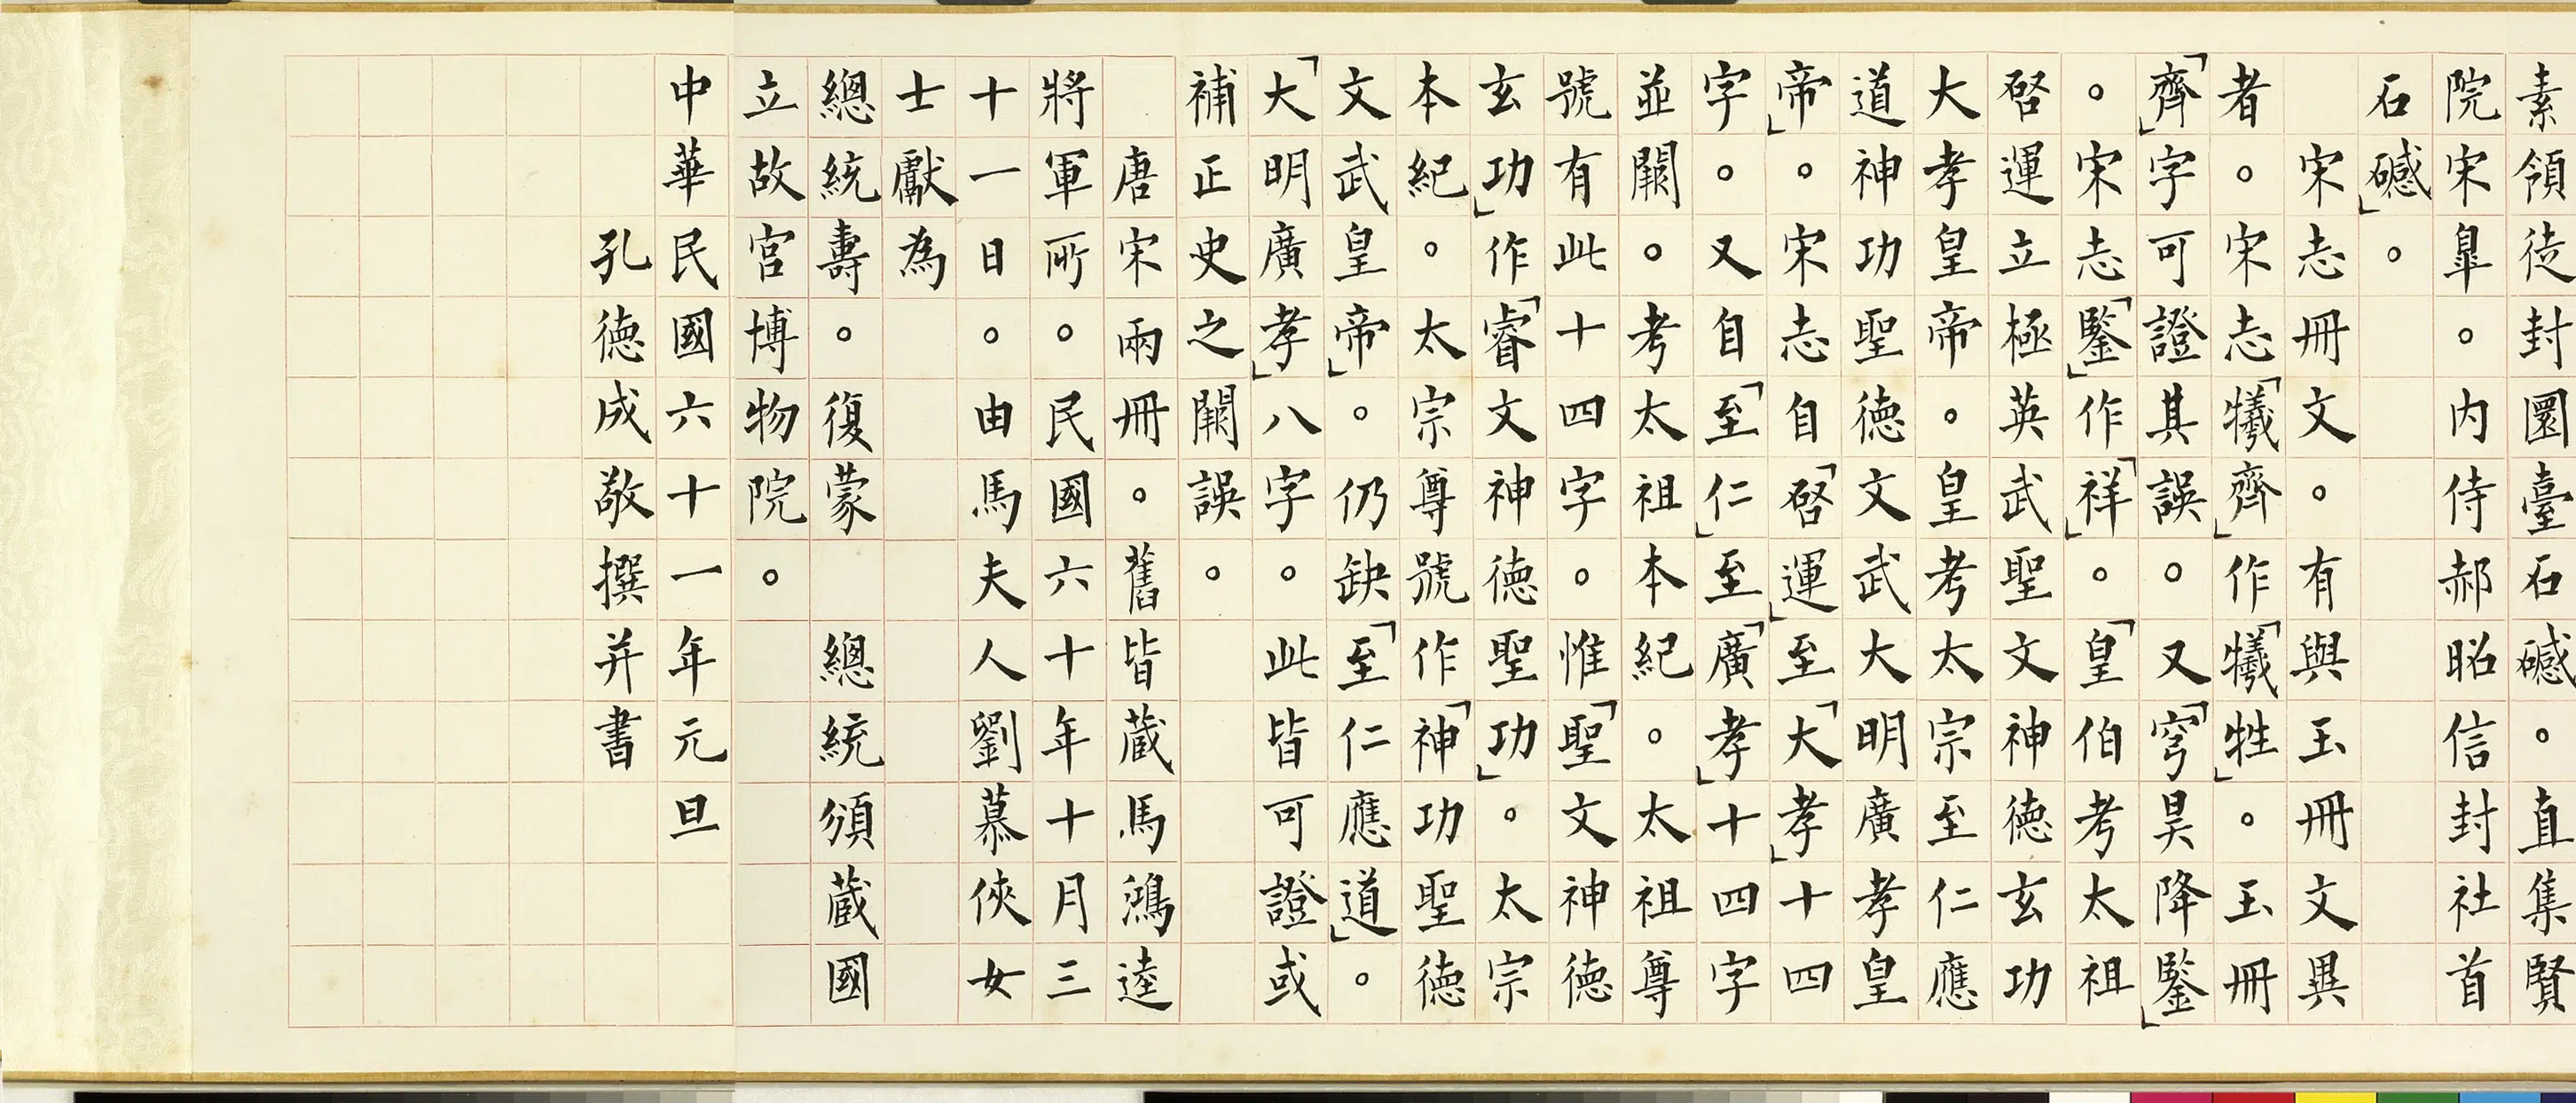 素領徒封圜臺石䃭。直集賢
院宋皐。內侍郝昭信封社首
石䃭」。
宋志冊文。有與玉冊文異
者。宋志「犧齊」作「犧牲」。玉冊
「齊」字可證其誤。又「穹昊降鑒」
。宋志「鑒」作「祥」。「皇伯考太祖
啓運立極英武聖文神德玄功
大孝皇帝。皇考太宗至仁應
道神功聖德文武大明廣孝皇
帝」。宋志自「啓運」至「大孝」十四
字。又自「至仁」至「廣孝」十四字
並闕。考太祖本紀。太祖尊
號有此十四字。惟「聖文神德
玄功」作「睿文神德聖功」。太宗
本紀。太宗尊號作「神功聖德
文武皇帝」。仍缺「至仁應道」。
「大明廣孝」八字。此皆可證或
補正史之闕誤。
唐宋兩冊。舊皆藏馬鴻逵
將軍所。民國六十年十月三
十一日。由馬夫人劉慕俠女
士獻為
總統壽。復蒙 總統頒藏國
立故宮博物院。
中華民國六十一年元旦
孔德成敬撰并書